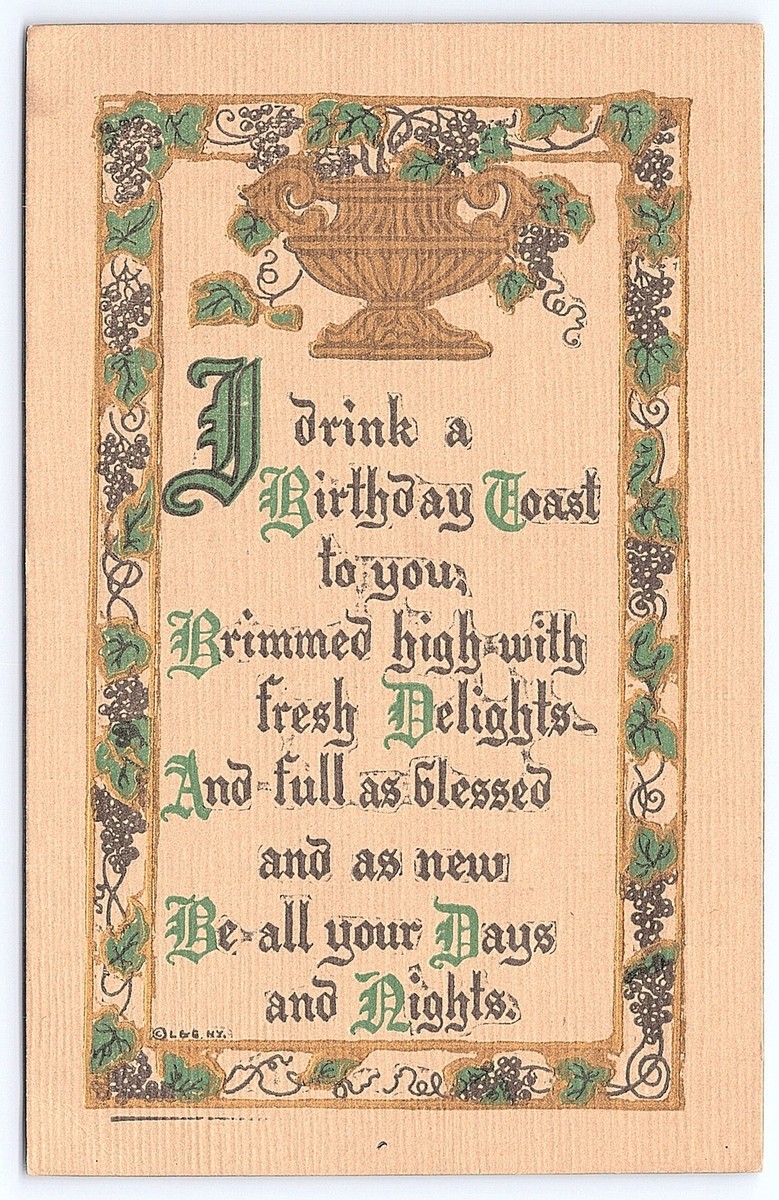 I drink a
Birthday Toast
to you;
Brimmed high with
fresh Delights
And full as blessed
and as new
Be all your Days
and Nights.
© L & E. N.Y.